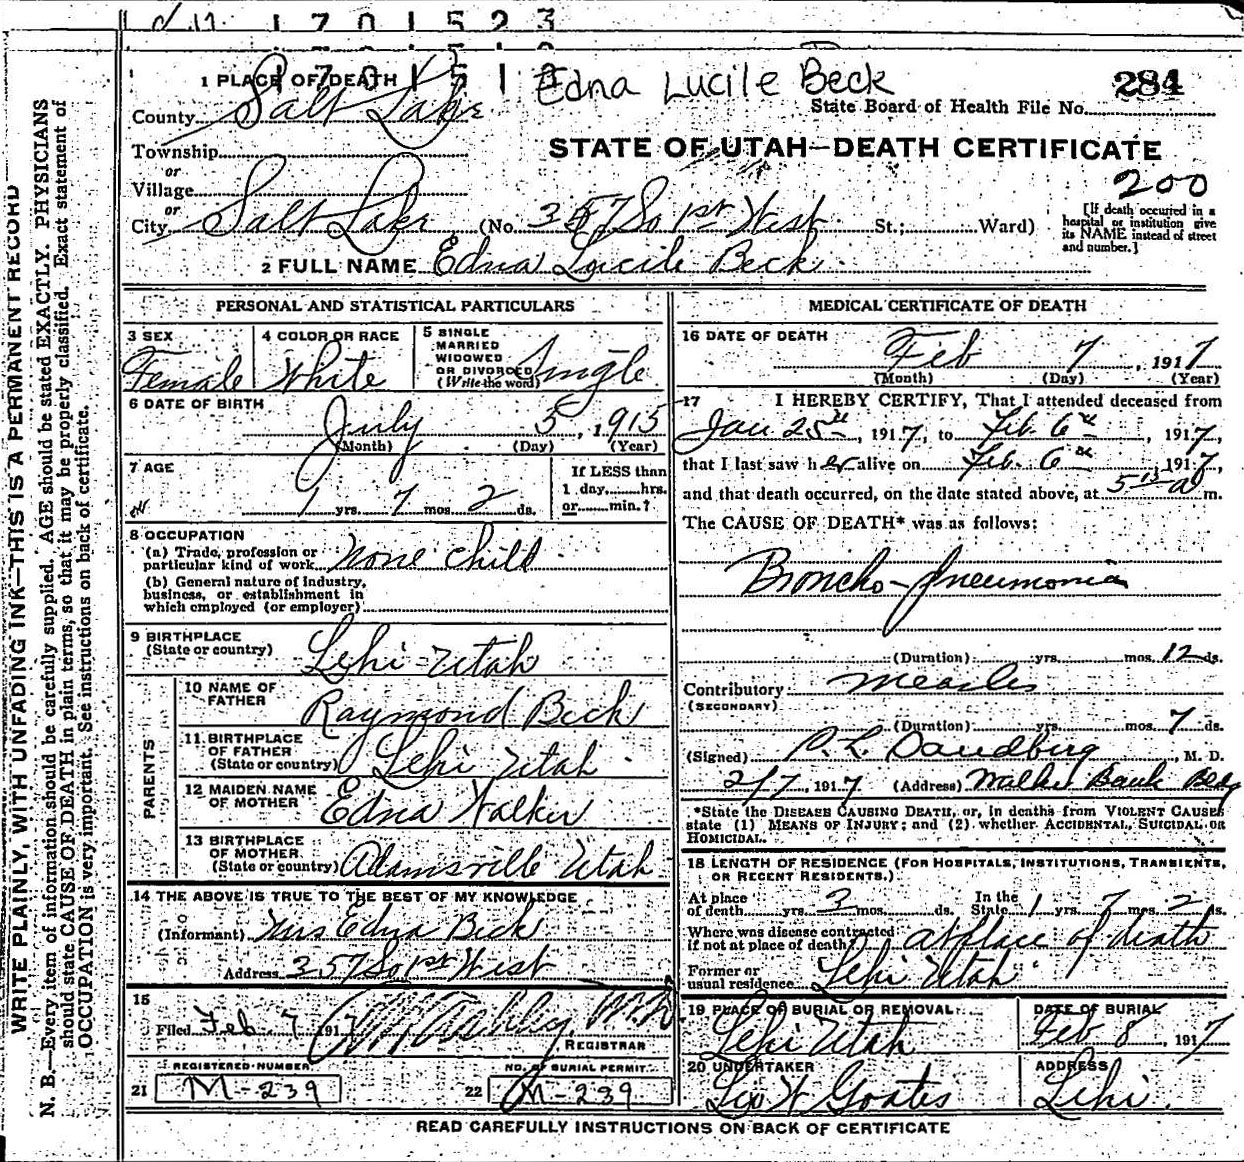 1701523
Edna Lucile Beck
284
1 PLACE OF DEATH 170151
State Board of Health File No.
County Salt Lake
STATE OF UTAH—DEATH CERTIFICATE
Township
or
Village
200
or
City Salt Lake (No. 357 So 1st West St.; Ward)
[If death occurred in a hospital or institution give its NAME instead of street and number.]
2 FULL NAME Edna Lucile Beck
PERSONAL AND STATISTICAL PARTICULARS
3 SEX Female
4 COLOR OR RACE White
5 SINGLE MARRIED WIDOWED OR DIVORCED (Write the word) Single
6 DATE OF BIRTH July 5, 1915
(Month) (Day) (Year)
7 AGE 1 yrs. 7 mos. 2 ds.
If LESS than 1 day, hrs. or min.?
8 OCCUPATION
(a) Trade, profession or particular kind of work None child
(b) General nature of industry, business, or establishment in which employed (or employer)
9 BIRTHPLACE (State or country) Lehi Utah
PARENTS
10 NAME OF FATHER Raymond Beck
11 BIRTHPLACE OF FATHER (State or country) Lehi Utah
12 MAIDEN NAME OF MOTHER Edna Walker
13 BIRTHPLACE OF MOTHER (State or country) Adamsville Utah
14 THE ABOVE IS TRUE TO THE BEST OF MY KNOWLEDGE
(Informant) Mrs Edna Beck
Address 357 So 1st West
15
Filed Feb 7 1917 Ashby, M.D.
REGISTRAR
REGISTERED NUMBER
21 M-239
NO. OF BURIAL PERMIT
22 M-239
MEDICAL CERTIFICATE OF DEATH
16 DATE OF DEATH
Feb 7, 1917
(Month) (Day) (Year)
17 I HEREBY CERTIFY, That I attended deceased from
Jan 25th, 1917, to Feb. 6th, 1917,
that I last saw her alive on Feb. 6th, 1917,
and that death occurred, on the date stated above, at 5 15 a m.
The CAUSE OF DEATH* was as follows:
Broncho-pneumonia
(Duration) yrs. mos. 12 ds.
Contributory Measles
(SECONDARY)
(Duration) yrs. mos. 7 ds.
(Signed) Sandberg, M. D.
2/7, 1917 (Address) Walker Bank Bldg
*State the DISEASE CAUSING DEATH, or, in deaths from VIOLENT CAUSES
state (1) MEANS OF INJURY; and (2) whether ACCIDENTAL, SUICIDAL OR
HOMICIDAL.
18 LENGTH OF RESIDENCE (FOR HOSPITALS, INSTITUTIONS, TRANSIENTS,
OR RECENT RESIDENTS.)
At place of death yrs. 3 mos. ds. In the State 1 yrs. 7 mos. 2 ds.
Where was disease contracted if not at place of death? at place of death
Former or usual residence Lehi Utah
19 PLACE OF BURIAL OR REMOVAL
Lehi Utah
DATE OF BURIAL
Feb 8, 1917
20 UNDERTAKER
Goates
ADDRESS
Lehi.
READ CAREFULLY INSTRUCTIONS ON BACK OF CERTIFICATE
WRITE PLAINLY, WITH UNFADING INK—THIS IS A PERMANENT RECORD
N. B.—Every item of information should be carefully supplied. AGE should be stated EXACTLY. PHYSICIANS
should state CAUSE OF DEATH in plain terms, so that it may be properly classified. Exact statement of
OCCUPATION is very important. See instructions on back of certificate.